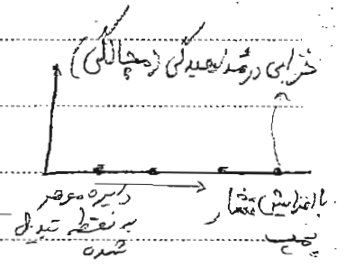 خرابی در تمدایمیدگی (مچالگی)
دایره موهر
به نقطه تبدیل
شده
با افزایش فشار
پمپ